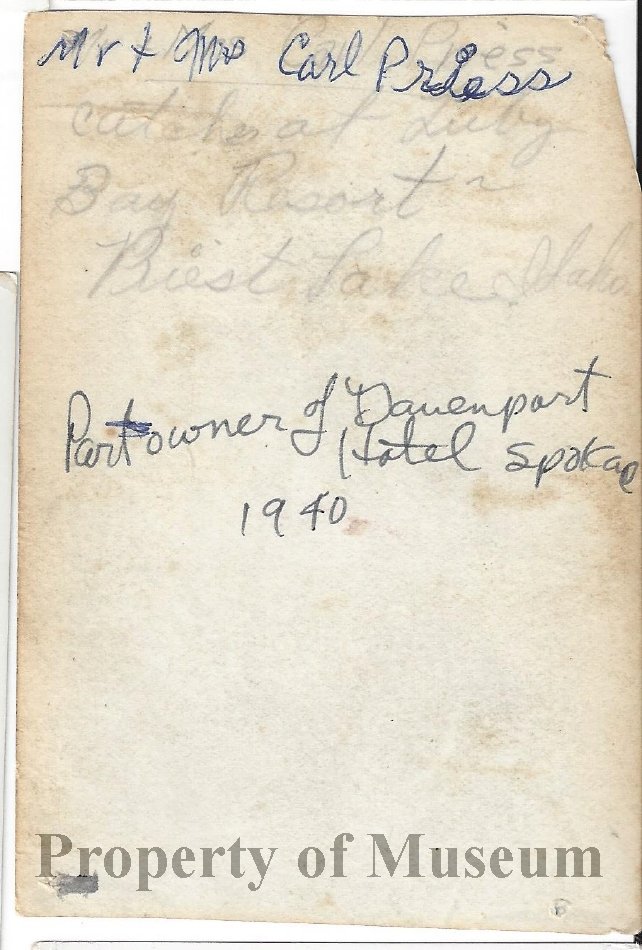 Mr + Mrs Carl Priess
catches at Luby
Bay Resort ~
Priest Lake, Idaho
Part owner of Davenport
Hotel Spokane
1940
Property of Museum